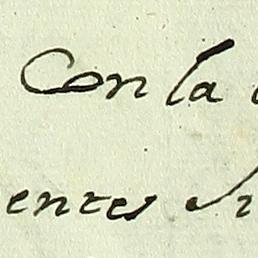 Con la
entes